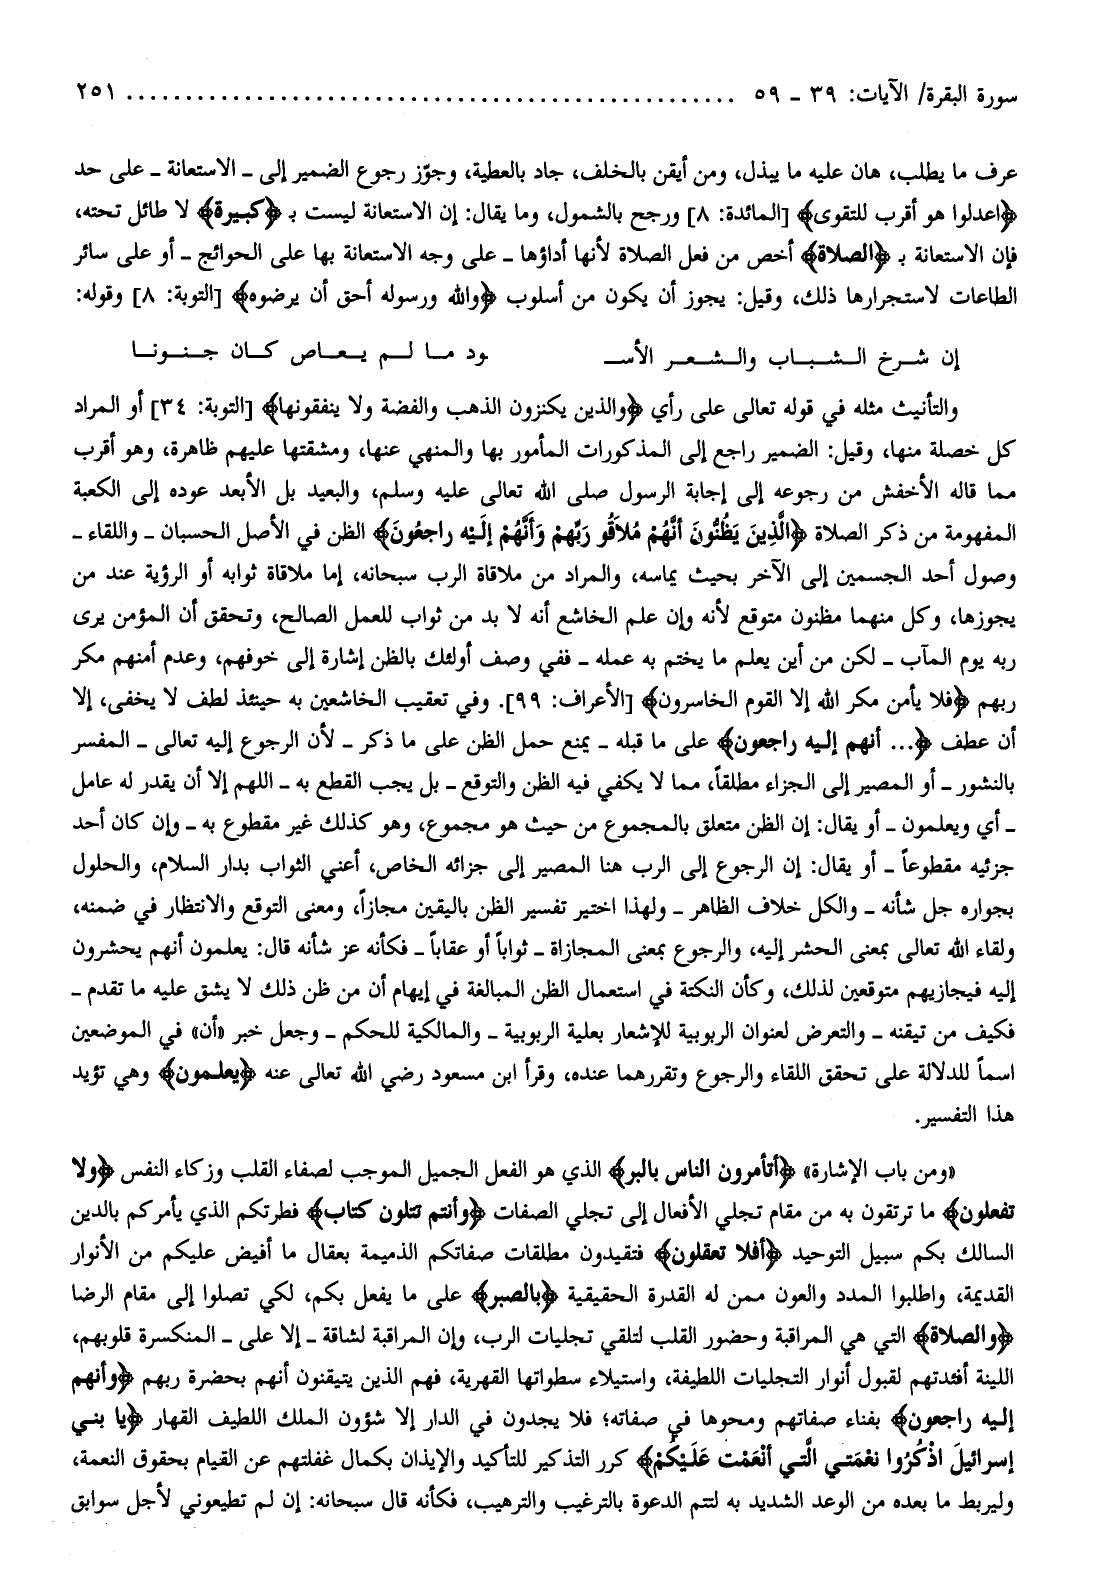 سورة البقرة/ الآيات: ٣٩ ـ ٥٩ .................................................... ٢٥١
عرف ما يطلب، هان عليه ما يبذل، ومن أيقن بالخلف، جاد بالعطية، وجوّز رجوع الضمير إلى ـ الاستعانة ـ على حد
﴿اعدلوا هو أقرب للتقوى﴾ [المائدة: ٨] ورجح بالشمول، وما يقال: إن الاستعانة ليست بـ ﴿كبيرة﴾ لا طائل تحته،
فإن الاستعانة بـ ﴿الصلاة﴾ أخص من فعل الصلاة لأنها أداؤها ـ على وجه الاستعانة بها على الحوائج ـ أو على سائر
الطاعات لاستجرارها ذلك، وقيل: يجوز أن يكون من أسلوب ﴿والله ورسوله أحق أن يرضوه﴾ [التوبة: ٨] وقوله:
إن شرخ الشباب والشعر الأسـ ـود ما لم يعاص كان جنونا
والتأنيث مثله في قوله تعالى على رأي ﴿والذين يكنزون الذهب والفضة ولا ينفقونها﴾ [التوبة: ٣٤] أو المراد
كل خصلة منها، وقيل: الضمير راجع إلى المذكورات المأمور بها والمنهي عنها، ومشقتها عليهم ظاهرة، وهو أقرب
مما قاله الأخفش من رجوعه إلى إجابة الرسول صلى الله تعالى عليه وسلم، والبعيد بل الأبعد عوده إلى الكعبة
المفهومة من ذكر الصلاة ﴿الَّذِينَ يَظُنُّونَ أنَّهُمْ مُلاَقُو رَبِّهِمْ وَأنَّهُمْ إلَيْه راجعُونَ﴾ الظن في الأصل الحسبان ـ واللقاء ـ
وصول أحد الجسمين إلى الآخر بحيث يماسه، والمراد من ملاقاة الرب سبحانه، إما ملاقاة ثوابه أو الرؤية عند من
يجوزها، وكل منهما مظنون متوقع لأنه وإن علم الخاشع أنه لا بد من ثواب للعمل الصالح، وتحقق أن المؤمن يرى
ربه يوم المآب ـ لكن من أين يعلم ما يختم به عمله ـ ففي وصف أولئك بالظن إشارة إلى خوفهم، وعدم أمنهم مكر
ربهم ﴿فلا يأمن مكر الله إلا القوم الخاسرون﴾ [الأعراف: ٩٩]. وفي تعقيب الخاشعين به حينئذ لطف لا يخفى، إلا
أن عطف ﴿... أنهم إليه راجعون﴾ على ما قبله ـ يمنع حمل الظن على ما ذكر ـ لأن الرجوع إليه تعالى ـ المفسر
بالنشور ـ أو المصير إلى الجزاء مطلقاً، مما لا يكفي فيه الظن والتوقع ـ بل يجب القطع به ـ اللهم إلا أن يقدر له عامل
ـ أي ويعلمون ـ أو يقال: إن الظن متعلق بالمجموع من حيث هو مجموع، وهو كذلك غير مقطوع به ـ وإن كان أحد
جزئيه مقطوعاً ـ أو يقال: إن الرجوع إلى الرب هنا المصير إلى جزائه الخاص، أعني الثواب بدار السلام، والحلول
بجواره جل شأنه ـ والكل خلاف الظاهر ـ ولهذا اختير تفسير الظن باليقين مجازاً، ومعنى التوقع والانتظار في ضمنه،
ولقاء الله تعالى بمعنى الحشر إليه، والرجوع بمعنى المجازاة ـ ثواباً أو عقاباً ـ فكأنه عز شأنه قال: يعلمون أنهم يحشرون
إليه فيجازيهم متوقعين لذلك، وكأن النكتة في استعمال الظن المبالغة في إيهام أن من ظن ذلك لا يشق عليه ما تقدم ـ
فكيف من تيقنه ـ والتعرض لعنوان الربوبية للإشعار بعلية الربوبية ـ والمالكية للحكم ـ وجعل خبر «أن» في الموضعين
اسماً للدلالة على تحقق اللقاء والرجوع وتقررهما عنده، وقرأ ابن مسعود رضي الله تعالى عنه ﴿يعلمون﴾ وهي تؤيد
هذا التفسير.
«ومن باب الإشارة» ﴿أتأمرون الناس بالبر﴾ الذي هو الفعل الجميل الموجب لصفاء القلب وزكاء النفس ﴿ولا
تفعلون﴾ ما ترتقون به من مقام تجلي الأفعال إلى تجلي الصفات ﴿وأنتم تتلون كتاب﴾ فطرتكم الذي يأمركم بالدين
السالك بكم سبيل التوحيد ﴿أفلا تعقلون﴾ فتقيدون مطلقات صفاتكم الذميمة بعقال ما أفيض عليكم من الأنوار
القديمة، واطلبوا المدد والعون ممن له القدرة الحقيقية ﴿بالصبر﴾ على ما يفعل بكم، لكي تصلوا إلى مقام الرضا
﴿والصلاة﴾ التي هي المراقبة وحضور القلب لتلقي تجليات الرب، وإن المراقبة لشاقة ـ إلا على ـ المنكسرة قلوبهم،
اللينة أفئدتهم لقبول أنوار التجليات اللطيفة، واستيلاء سطواتها القهرية، فهم الذين يتيقنون أنهم بحضرة ربهم ﴿وأنهم
إليه راجعون﴾ بفناء صفاتهم ومحوها في صفاته؛ فلا يجدون في الدار إلا شؤون الملك اللطيف القهار ﴿يا بني
إسرائيلَ اذْكُرُوا نعْمَتي الَّتي أنْعَمْت عَلَيْكُمْ﴾ كرر التذكير للتأكيد والإيذان بكمال غفلتهم عن القيام بحقوق النعمة،
وليربط ما بعده من الوعد الشديد به لتتم الدعوة بالترغيب والترهيب، فكأنه قال سبحانه: إن لم تطيعوني لأجل سوابق